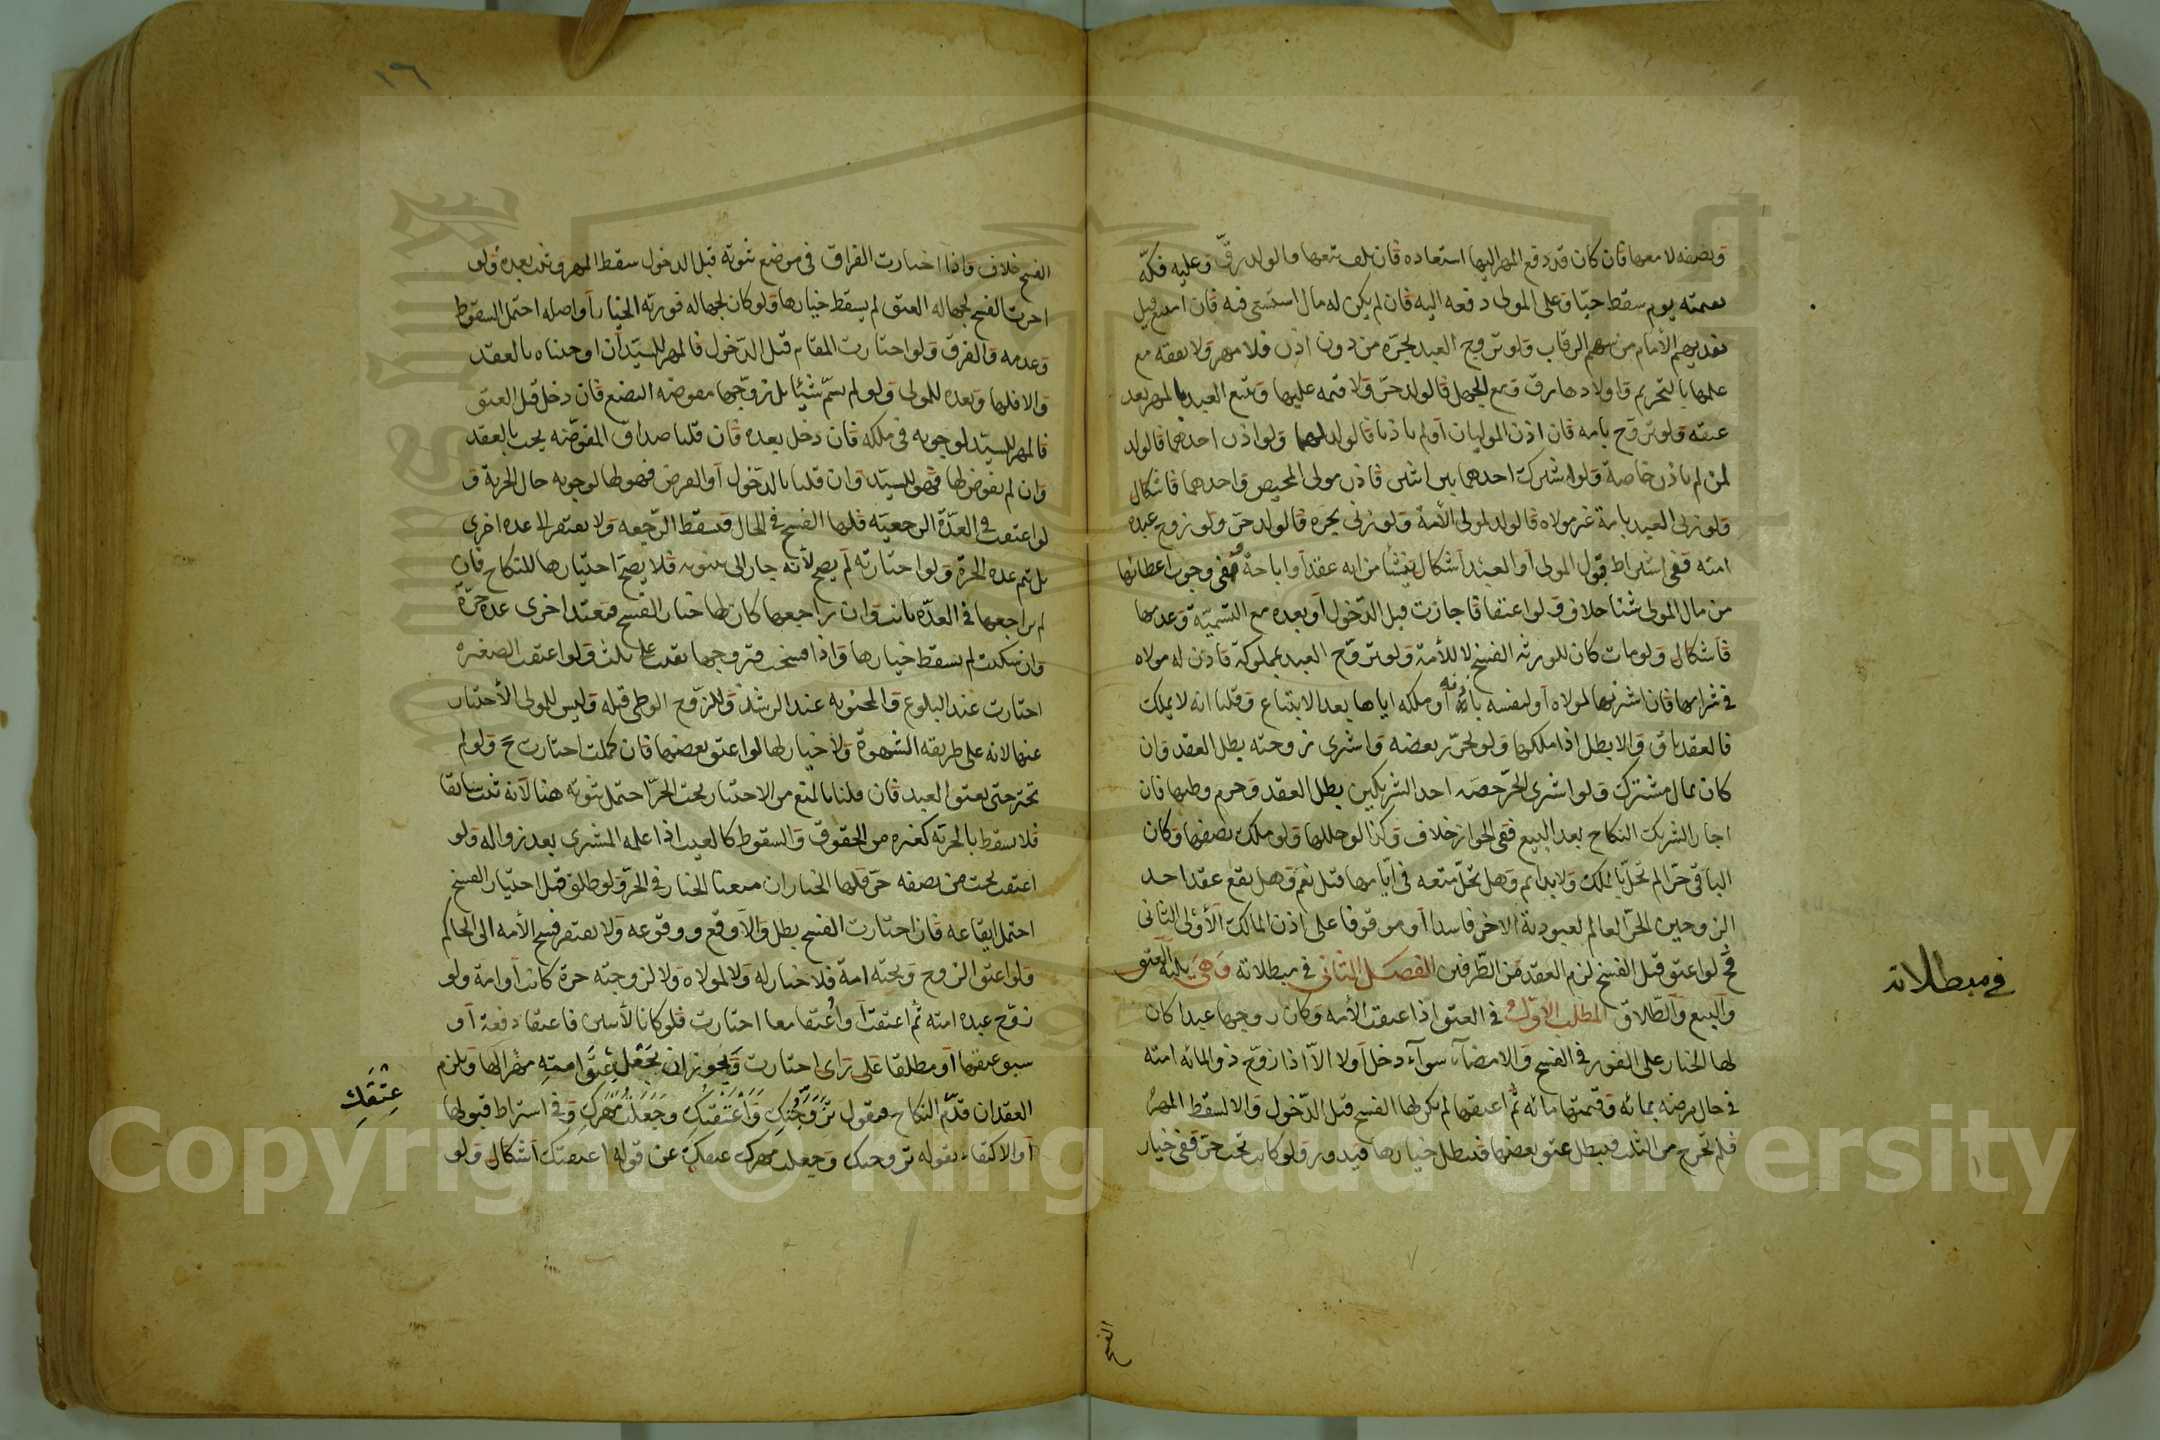 ونصفه لا معها فان كان قد دفع المهر اليها استعاده فان تلف تبعها والولد رق وعليه فكه
بقيمته يوم سقط حيا وعلى المولى دفعه اليه فان لم يكن له مال استسعى فيه فان امتنع قيل
يفديهم الأمام من سهم الرقاب ولو تزوج العبد بحرة من دون اذن فلا مهر ولا نفقة مع
علمها بالتحريم واولادها رق ومع الجهل فالولد حر ولا قيمة عليها ويتبع العبد بالمهر بعد
عتقه ولو تزوج بامة فان اذن الموليان اولم ياذنا فالولد لهما ولو اذن احدهما فالولد
لمن لم ياذن خاصة ولو اشترك احدهما بين اثنين فاذن مولى المختص واحدهما فاشكال
ولو زنى العبد بامة غير مولاه فالولد لمولى الأمة ولو زنى بحرة فالولد حر ولو زوج عبده
امته ففي اشتراط قبول المولى او العبد اشكال ينشأ من انه عقد او اباحة وفي وجوب اعطائها
من مال المولى شيئا خلاف ولو اعتقا فاجازت قبل الدخول او بعده مع التسمية وعدمها
فاشكال ولو مات كان للورثة الفسخ لا للأمة ولو تزوج العبد بمملوكة فاذن له مولاه
في شرائها فان اشتريها لمولاه او لنفسه باذنه او ملكه اياها بعد الابتياع وقلنا انه لا يملك
فالعقد باق والا بطل اذا ملكها ولو تحرر بعضه واشترى زوجته بطل العقد وان
كان بمال مشترك ولو اشترى الحر حصة احد الشريكين بطل العقد وحرم وطيها فان
اجاز الشريك النكاح بعد البيع ففي الجواز خلاف وكذا لو حللها ولو ملك نصفها وكان
الباقي حرا لم تحل بالملك ولا بدائم وهل تحل متعة في ايامها قيل نعم وهل يقع عقد احد
الزوجين الحر العالم لعبودية الاخر فاسدا او موقوفا على اذن المالك الأولى الثاني
فح لو اعتق قبل الفسخ لزم العقد من الطرفين الفصل الثاني في مبطلاته وهى ثلثة العتق
والبيع والطلاق المطلب الاول في العتق اذا عتقت الأمة وكان زوجها عبدا كان
لها الخيار على الفور في الفسخ والامضاء سواء دخل اولا الا اذا زوج ذو المائة امته
في حال مرضه بمائة وقيمتها مائة ثم اعتقها لم يكن لها الفسخ قبل الدخول والا لسقط المهر
فلم تخرج من الثلث فيبطل عتق بعضها فيبطل خيارها فيدور ولو كانت تحت حر ففي خيار
الفسخ
في مبطلاته
١٦
الفسخ خلاف واذا اختارت الفراق في موضع ثبوته قبل الدخول سقط المهر وثبت بعده ولو
اخرت الفسخ لجهالة العتق لم يسقط خيارها ولو كان لجهالة فورية الخيار او اصله احتمل السقوط
وعدمه والفرق ولو اختارت المقام قبل الدخول فالمهر للسيد ان اوجبناه بالعقد
والا فلها وبعده للمولى ولو لم يسم شيئا بل زوجها مفوضة البضع فان دخل قبل العتق
فالمهر للسيد لوجوبه في ملكه فان دخل بعده فان قلنا صداق المفوضة يجب بالعقد
وان لم يفرض لها فهو للسيد وان قلنا بالدخول او الفرض فهو لها لوجوبه حال الحرية و
لو اعتقت في العدة الرجعية فلها الفسخ في الحال فتسقط الرجعة ولا يفتقر الى عدة اخرى
بل تتم عدة الحرة ولو اختارته لم يصح لأنه جار الى بينونة فلا يصح احتيارها للنكاح فان
لم يراجعها في العدة بانت وان راجعها كان لها خيار الفسخ فتعتد اخرى عدة حرة
وان سكتت لم يسقط خيارها واذا فسخت فتزوجها بقيت على ثلث ولو اعتقت الصغيرة
اختارت عند البلوغ والمجنونة عند الرشد وللزوج الوطي قبله وليس للمولى الأختيار
عنها لانه على طريقة الشهوة ولا خيار لها لو اعتق بعضها فان كملت اختارت ح ولو لم
تختر حتى يعتق العبد فان قلنا بالمنع من الاختيار تحت الحر احتمل ثبوته هنا لأنه ثبت سابقا
فلا يسقط بالحرية كغيره من الحقوق والسقوط كالعيب اذا علمه المشترى بعد زواله ولو
اعتقت تحت من نصفه حر فلها الخيار ان منعنا الخيار في الحر ولو طلق قبل اختيار الفسخ
احتمل ايقاعه فان اختارت الفسخ بطل والا وقع ووقوعه ولا يفتقر فسخ الأمة الى الحاكم
ولو اعتق الزوج وتحته امة فلا خيار له ولا لمولاه ولا لزوجته حرة كانت او امة ولو
زوج عبده امته ثم اعتقت او اعتقا معا اختارت فلو كانا لأثنين فاعتقا دفعة او
سبق عتقها او مطلقا على راى اختارت ويجوز ان يجعل عتق امته مهرا لها ويلزم
العقد ان قدم النكاح فيقول تزوجتك واعتقتك وجعلت مهرك وفي اشتراط قبولها
او الاكتفاء بقوله تزوجتك وجعلت مهرك عتقك عن قوله اعتقتك اشكال ولو
عتقك
Copyright © King Saud University